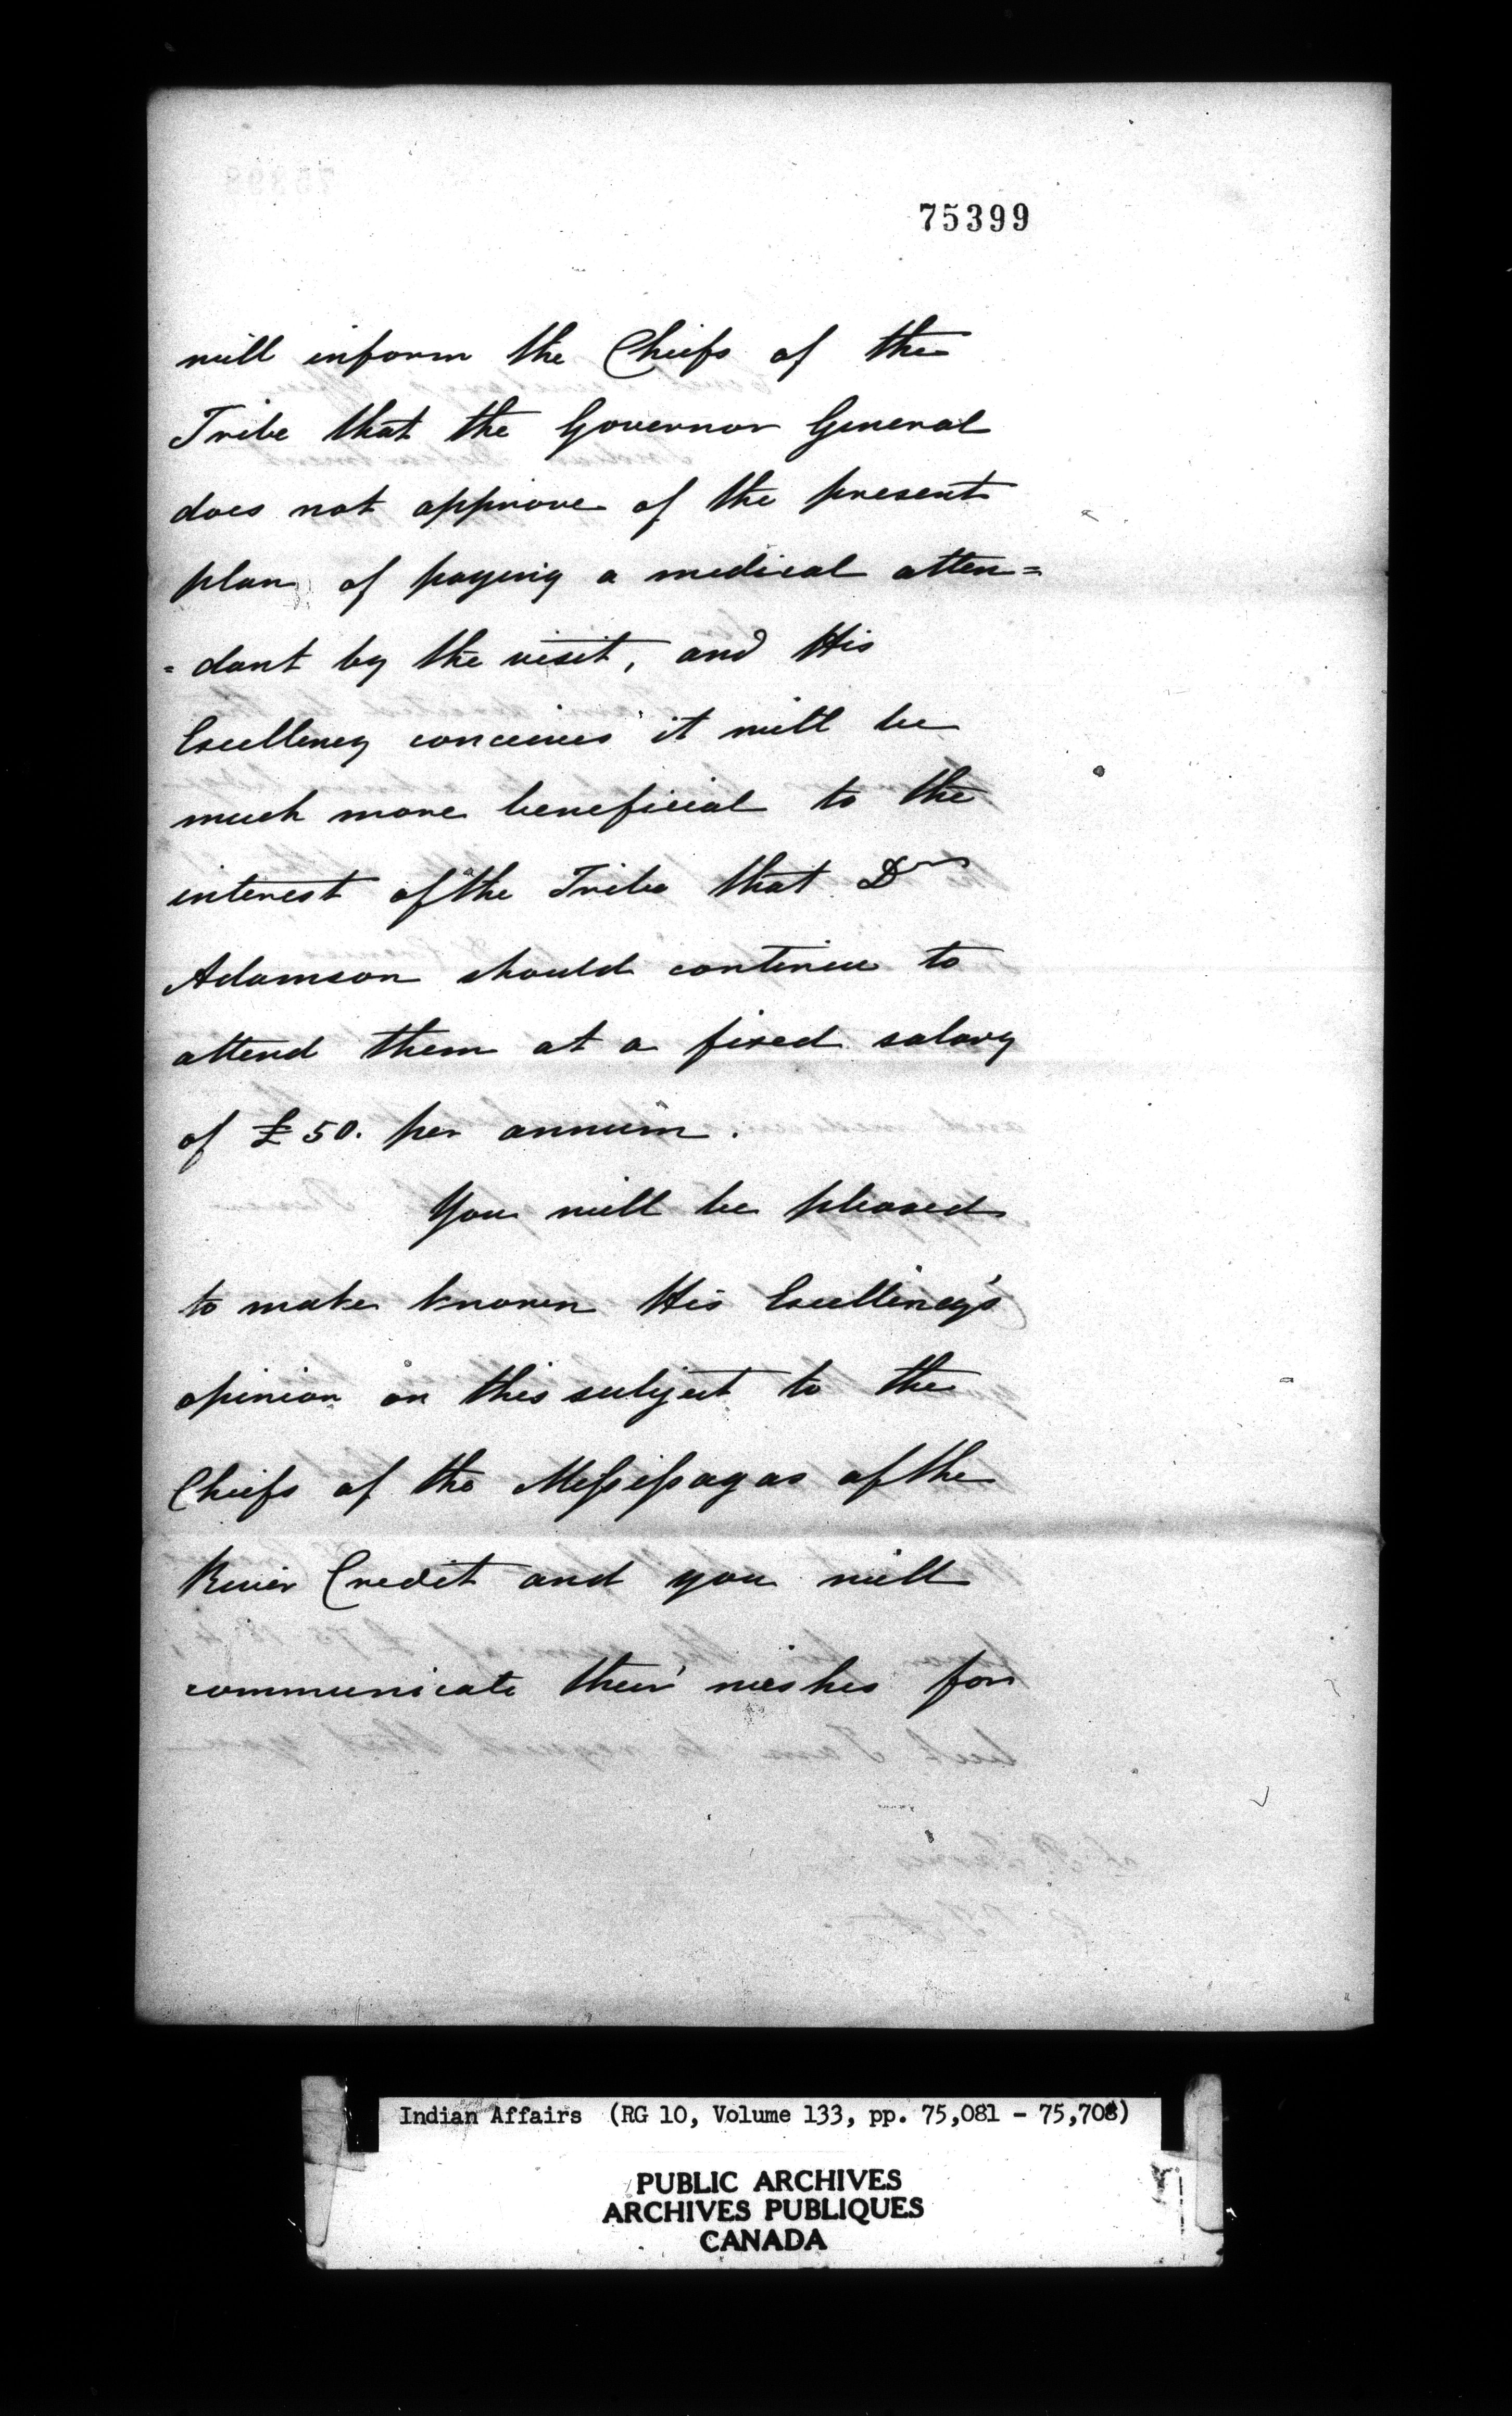 75399
will inform the Chiefs of the
Tribe that the Governor General
does not approve of the present
plan of paying a medical atten=
=dant by the visit, and His
Excellency conceives it will be
much more beneficial to the
interest of the Tribe that Dr
Adamson should continue to
attend them at a fixed salary
of £50. per annum.
You will be pleased
to make known His Excellency's
opinion on this subject to the
Chiefs of the Messissagas of the
River Credit and you will
communicate their wishes for
Indian Affairs (RG 10, Volume 133, pp. 75,081 - 75,708)
PUBLIC ARCHIVES
ARCHIVES PUBLIQUES
CANADA